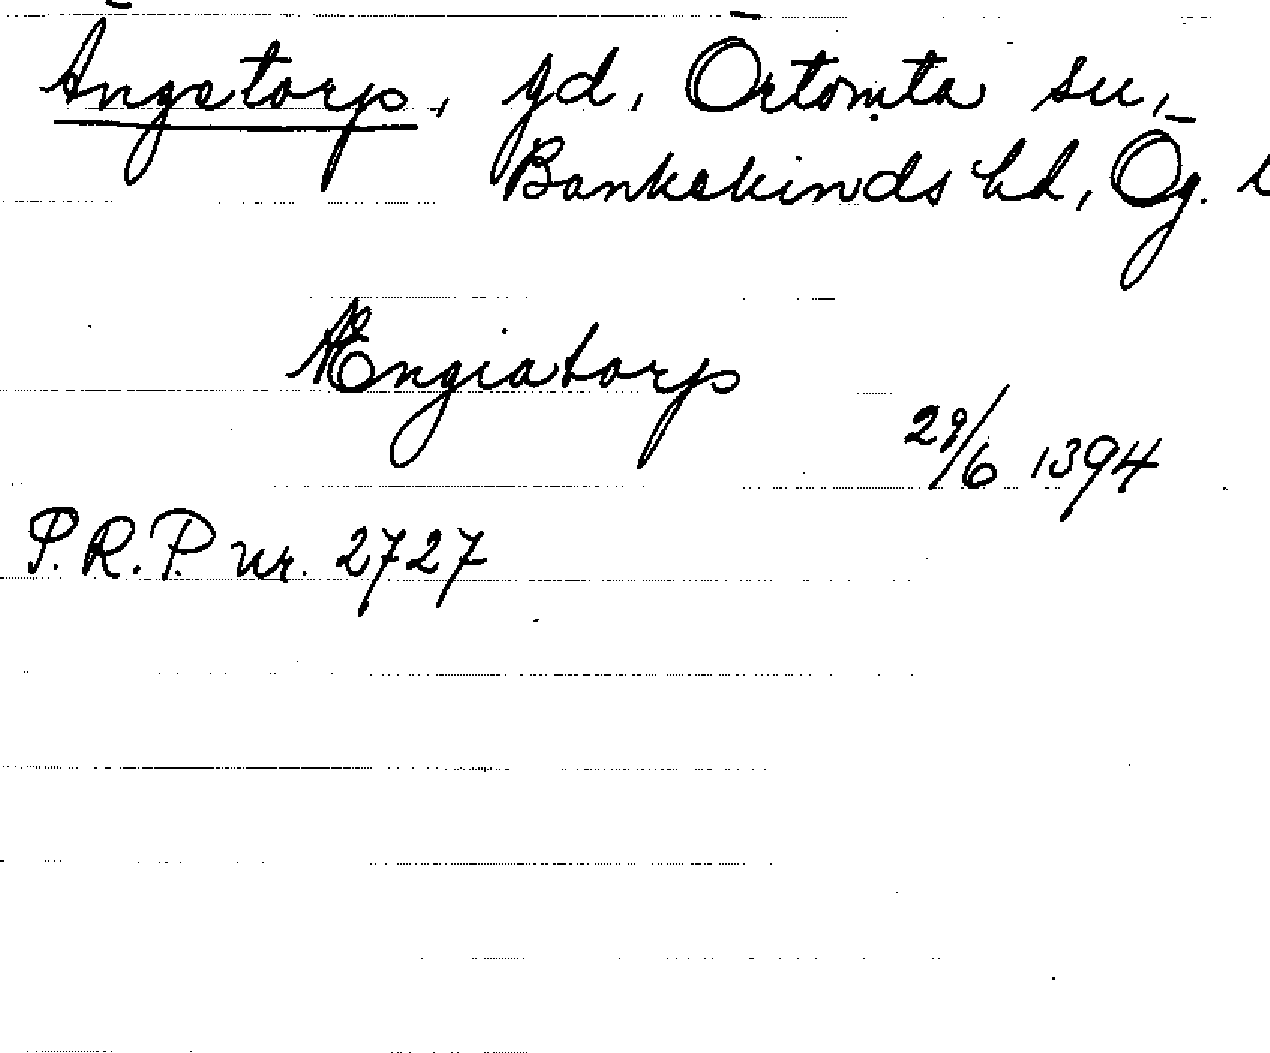 Ängstorp, gd, Örtomta sn,
Bankekinds hd, Ög. l
Ængiatorp
29/6 1394
P.R.P. nr. 2727